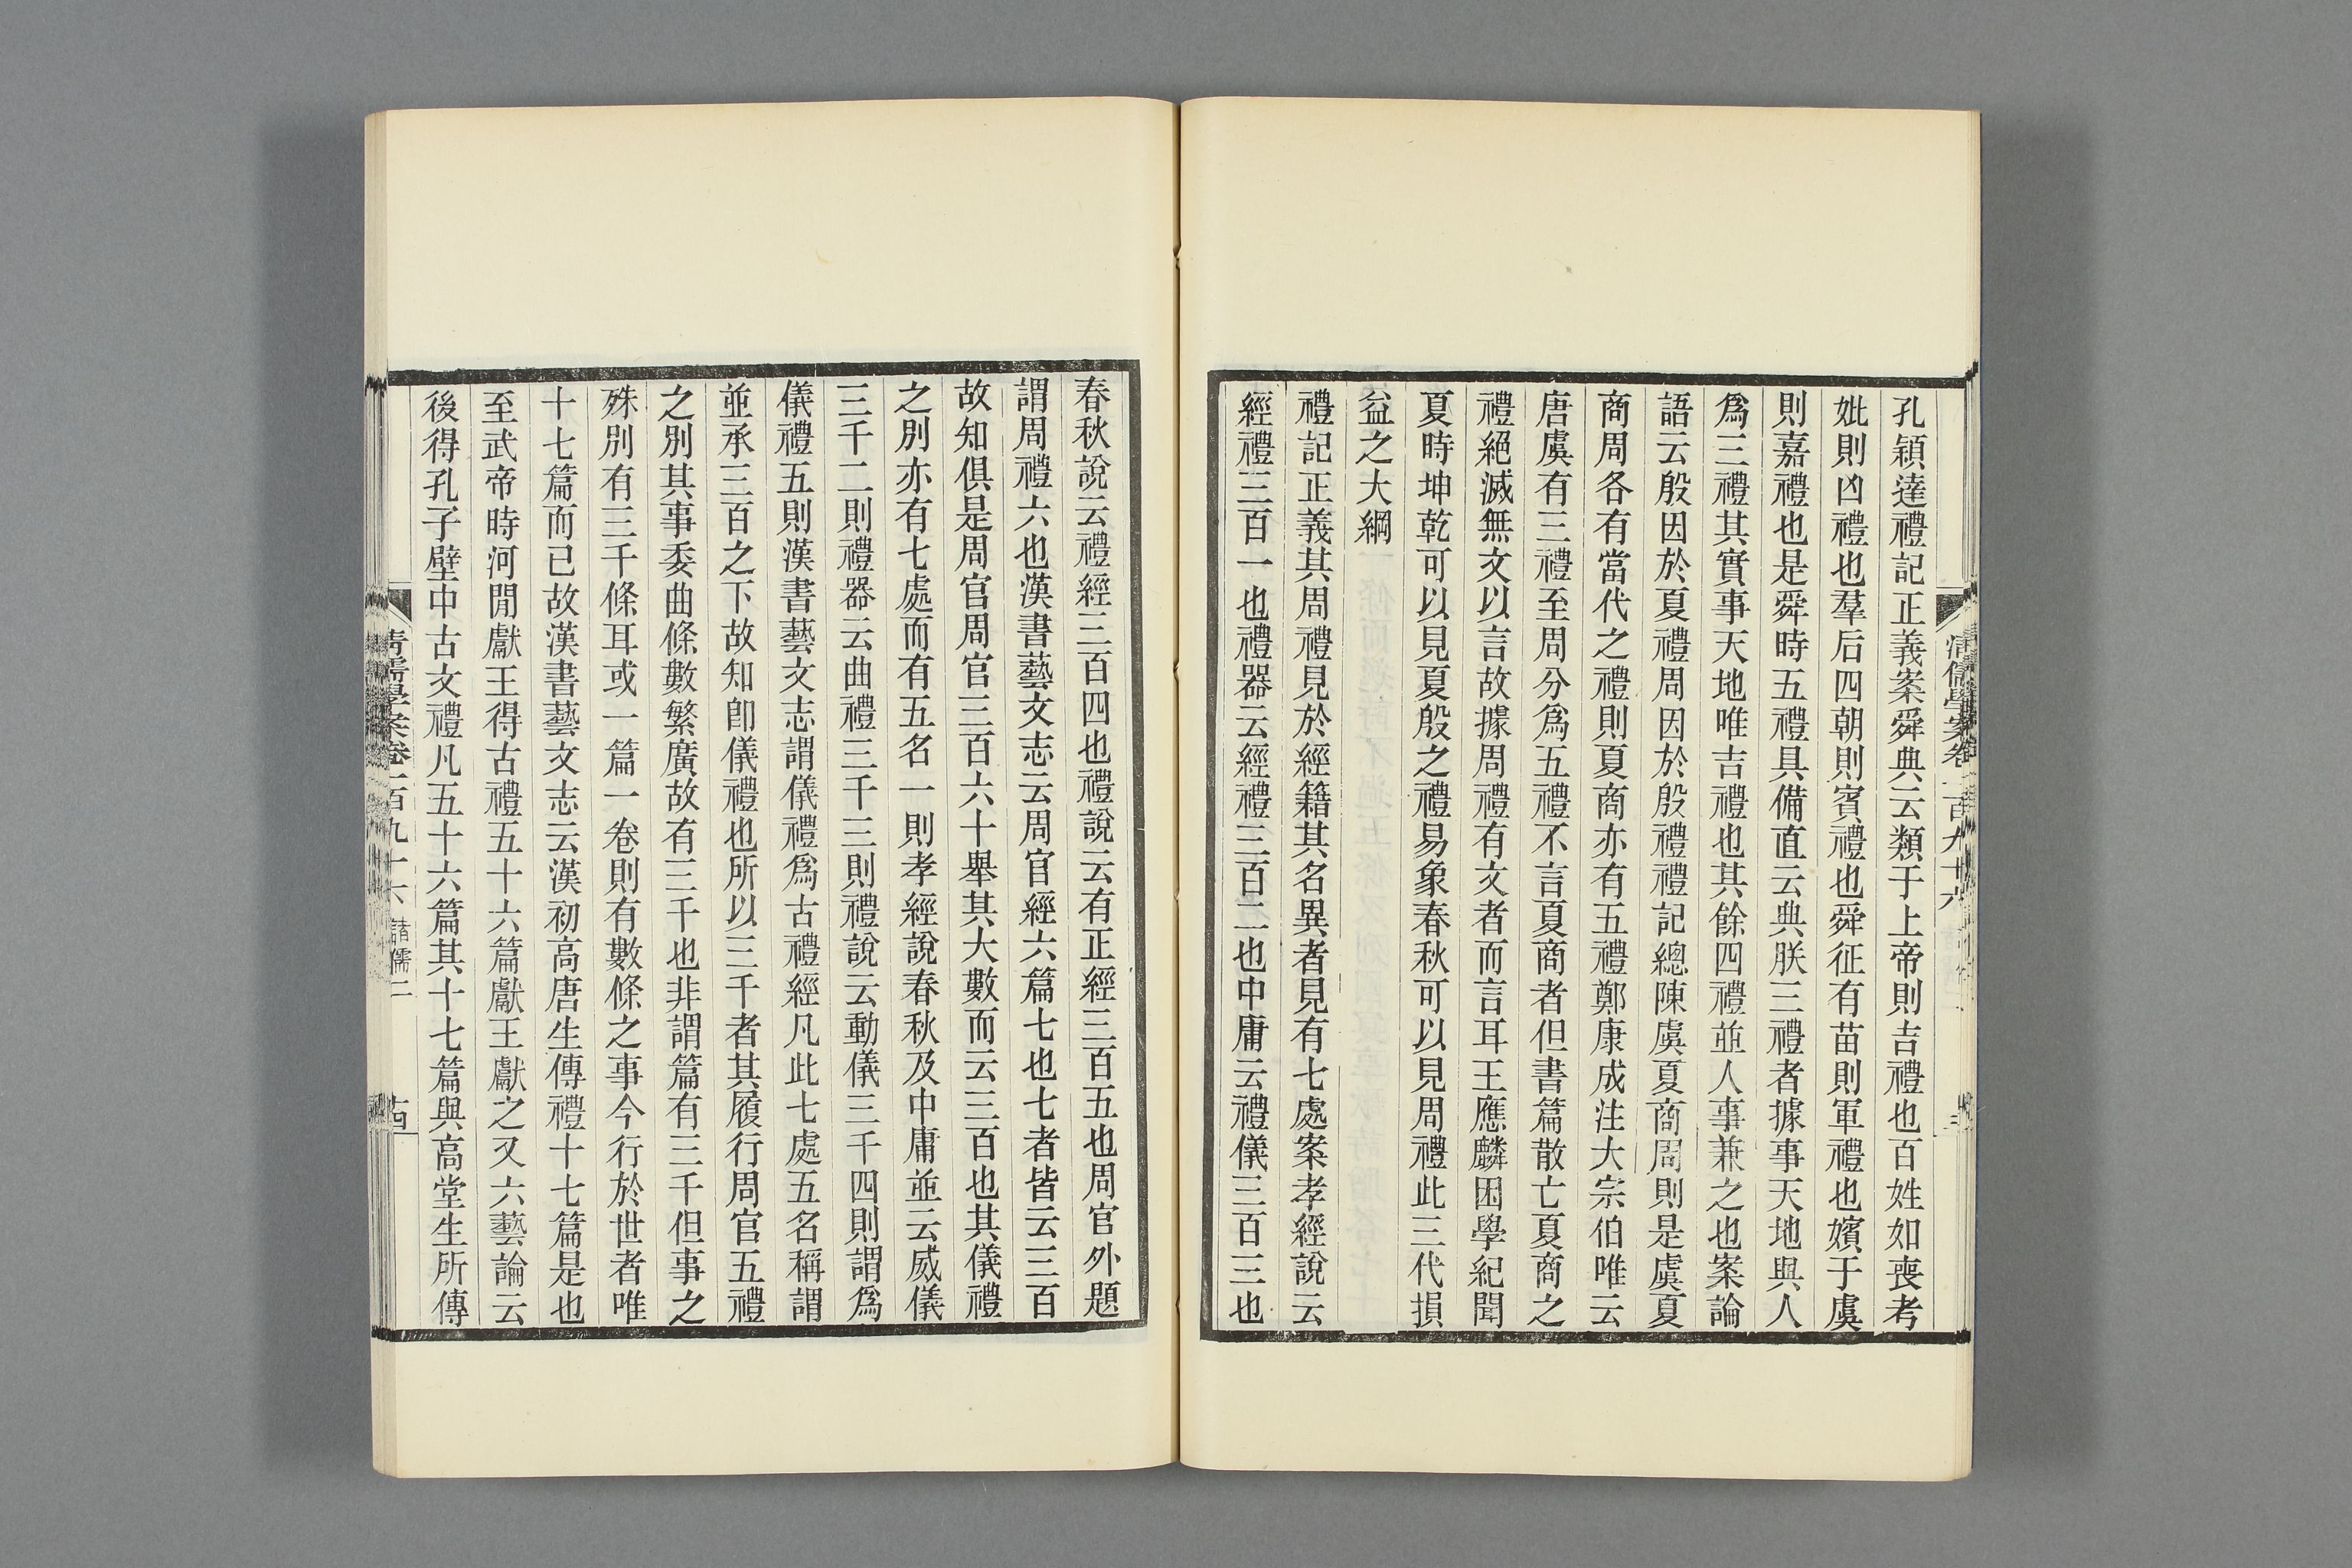 孔穎達禮記正義案舜典云類于上帝則吉禮也百姓如喪考
妣則凶禮也羣后四朝則賓禮也舜征有苗則軍禮也嬪于虞
則嘉禮也是舜時五禮具備直云典朕三禮者據事天地與人
爲三禮其實事天地唯吉禮也其餘四禮並人事兼之也案論
語云殷因於夏禮周因於殷禮禮記總陳虞夏商周則是虞夏
商周各有當代之禮則夏商亦有五禮鄭康成注大宗伯唯云
唐虞有三禮至周分爲五禮不言夏商者但書篇散亡夏商之
禮絕滅無文以言故據周禮有文者而言耳王應麟困學紀聞
夏時坤乾可以見夏殷之禮易象春秋可以見周禮此三代損
益之大綱
禮記正義其周禮見於經籍其名異者見有七處案孝經說云
經禮三百一也禮器云經禮三百二也中庸云禮儀三百三也
清儒學案卷一百九十六
春秋說云禮經三百四也禮說云有正經三百五也周官外題
謂周禮六也漢書藝文志云周官經六篇七也七者皆云三百
故知俱是周官周官三百六十舉其大數而云三百也其儀禮
之別亦有七處而有五名一則孝經說春秋及中庸並云威儀
三千二則禮器云曲禮三千三則禮說云動儀三千四則謂爲
儀禮五則漢書藝文志謂儀禮爲古禮經凡此七處五名稱謂
並承三百之下故知卽儀禮也所以三千者其履行周官五禮
之別其事委曲條數繁廣故有三千也非謂篇有三千但事之
殊別有三千條耳或一篇一卷則有數條之事今行於世者唯
十七篇而已故漢書藝文志云漢初高唐生傳禮十七篇是也
至武帝時河閒獻王得古禮五十六篇獻王獻之又六藝論云
後得孔子壁中古文禮凡五十六篇其十七篇與高堂生所傳
清儒學案卷一百九十六 諸儒二 十四